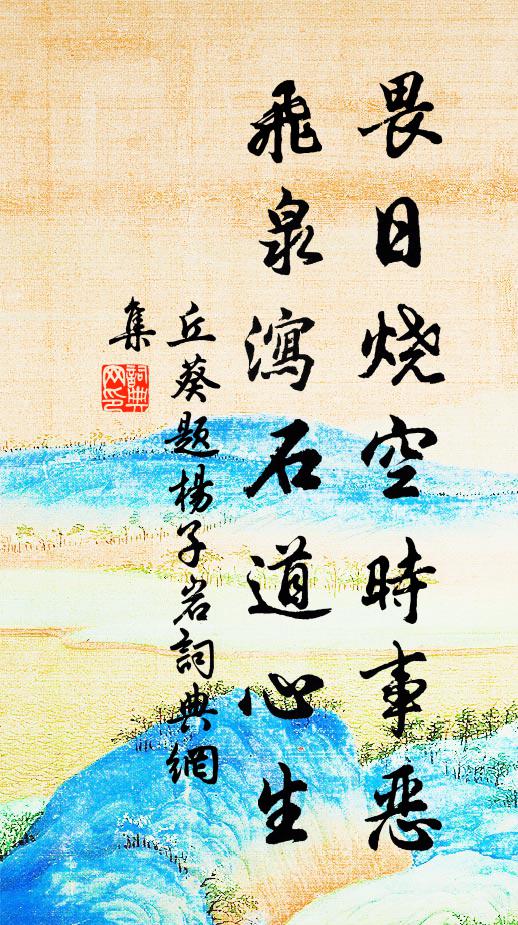 畏日烧空時事惡
飛泉瀉石道心生
丘葵題楊子岩詞典網
集
詞典网印